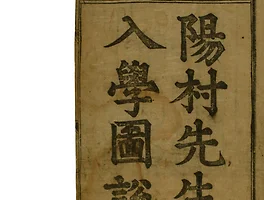 陽村先生
入學圖說